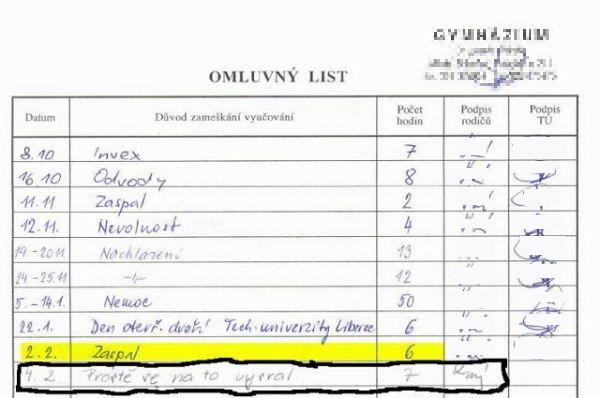 GYMNÁZIUM
OMLUVNÝ LIST
Datum Důvod zameškání vyučování Počet hodin Podpis rodičů Podpis TÚ
8.10 Invex 7
16.10 Odvody 8
11.11 Zaspal 2
12.11. Nevolnost 4
19-20.11. Nachlazení 13
24-25.11 -//- 12
5.-14.1. Nemoc 50
22.1. Den otevř. dveří Tech. univerzity Liberec 6
2.2. Zaspal 6
4.2. Prostě se na to vysral 7